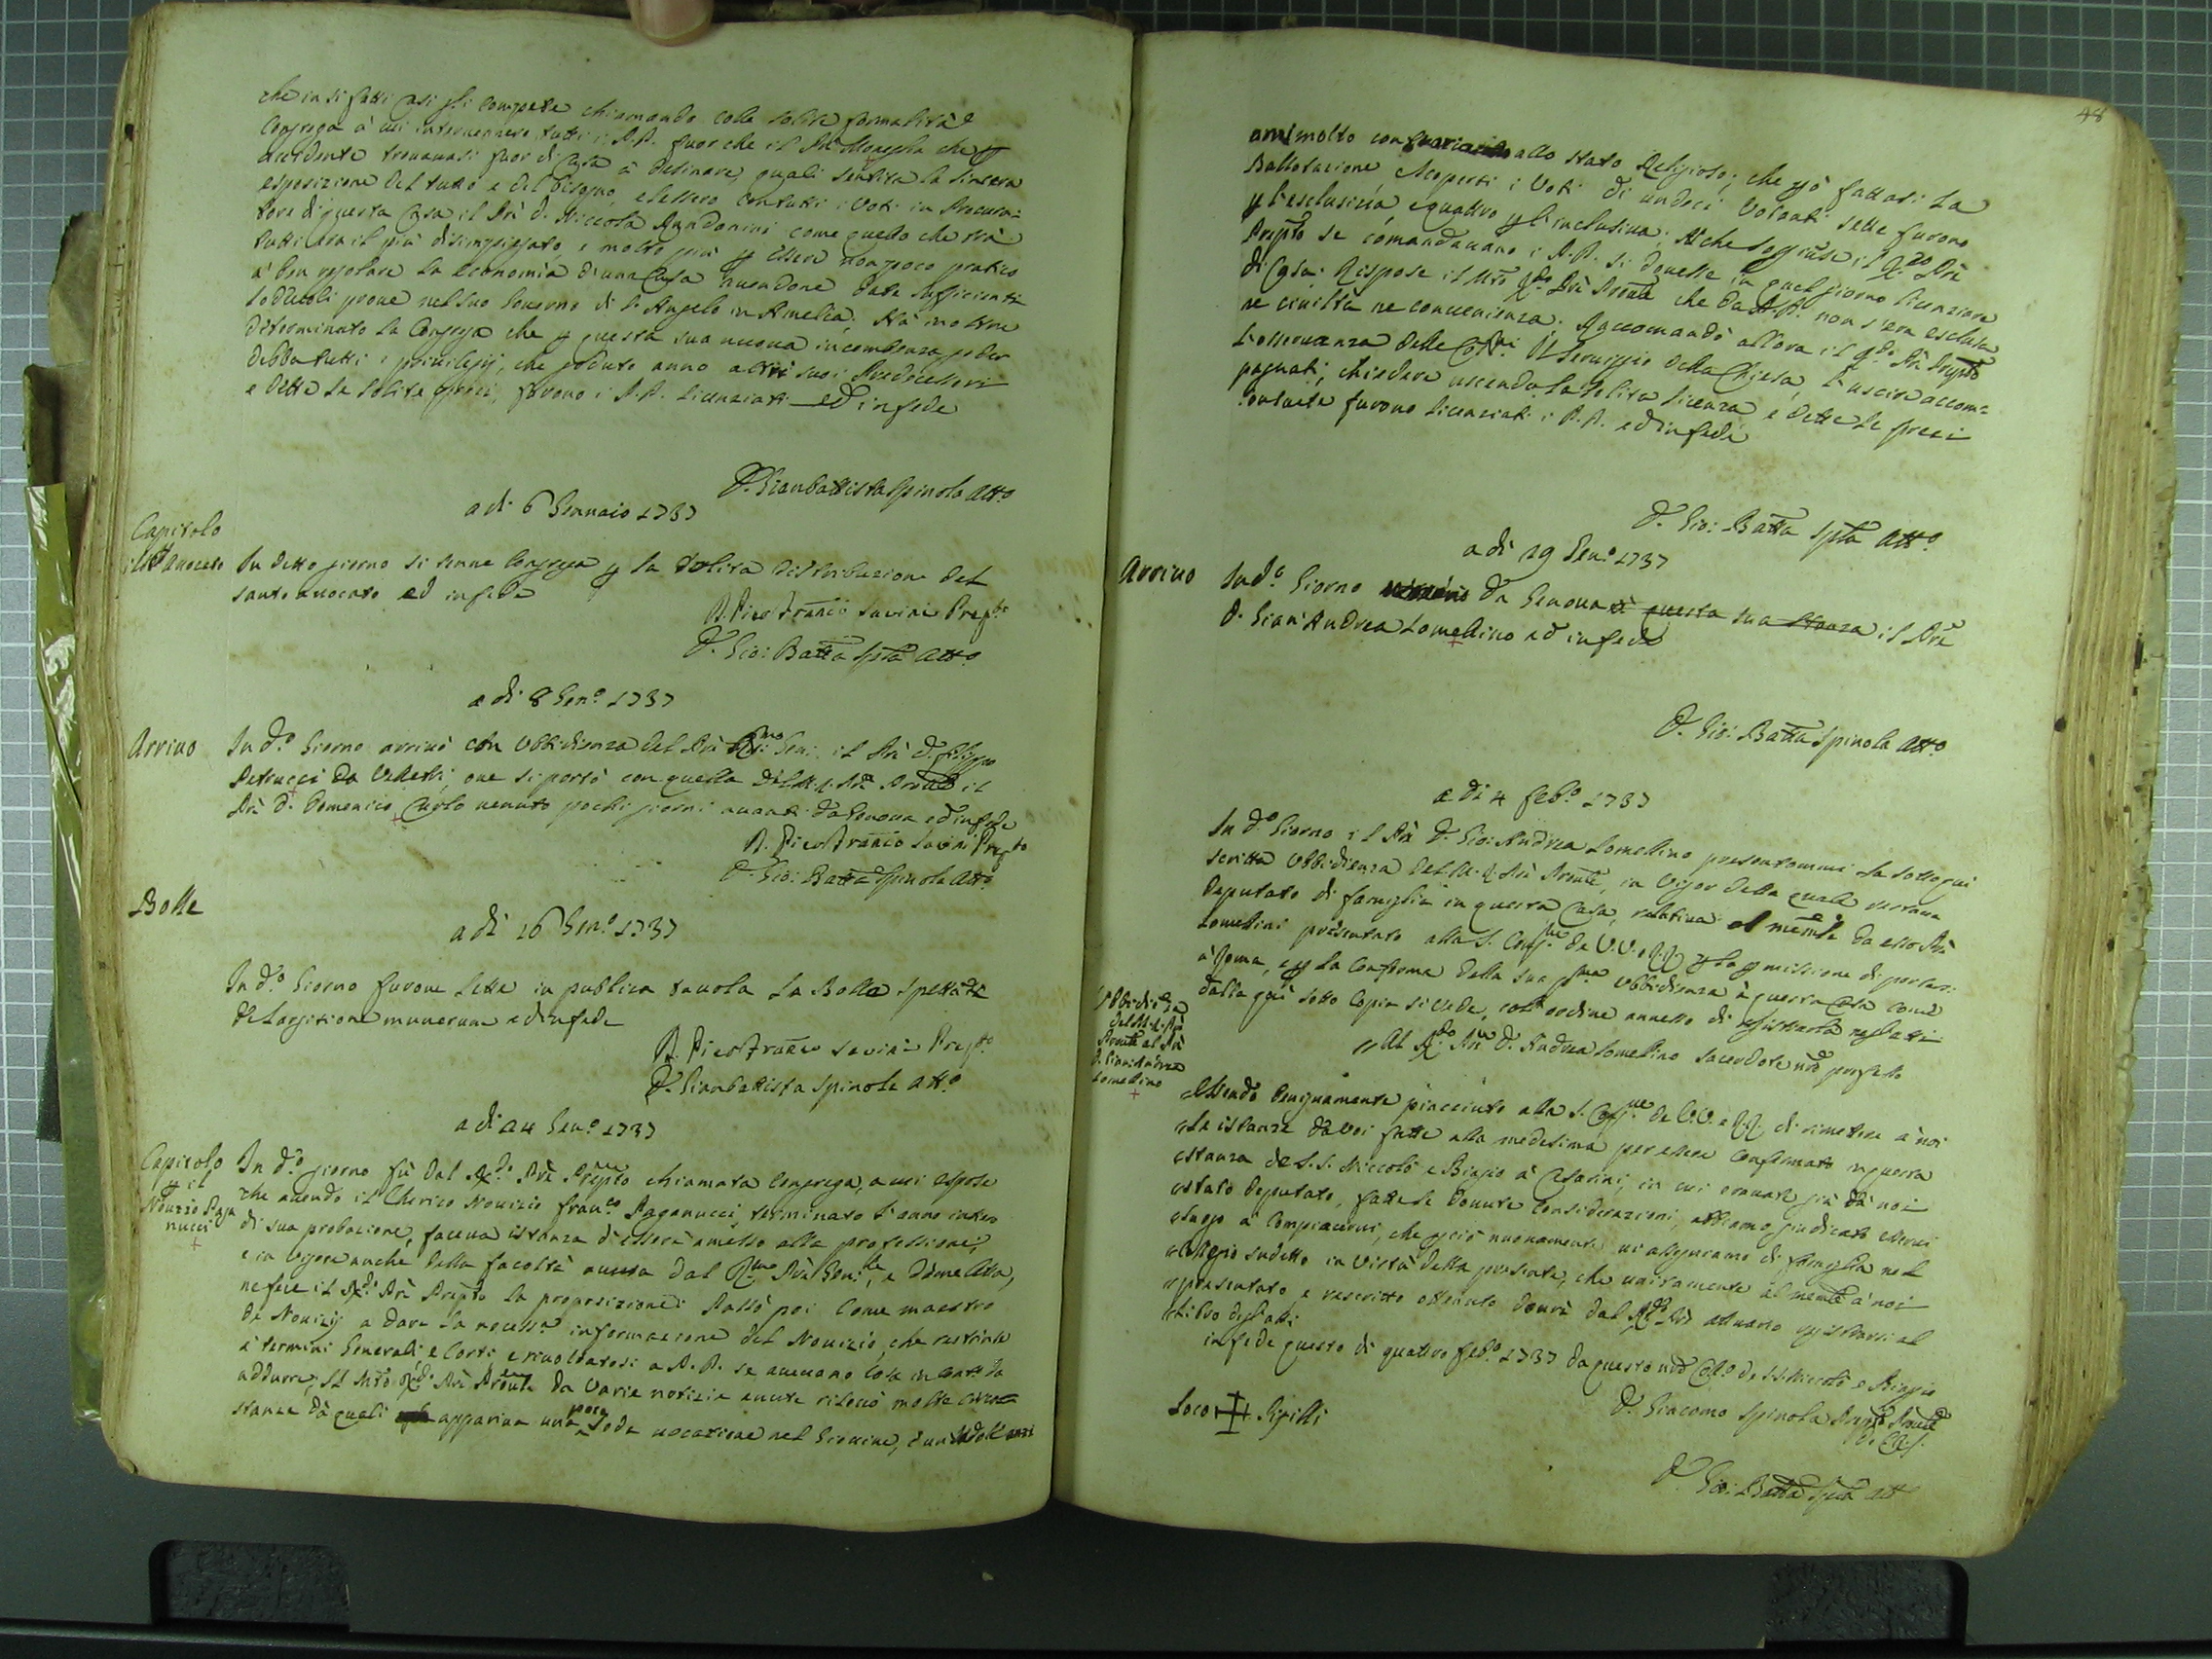 che in si fatti casi gli compete chiamando colle solite formalità
Congrega à cui intervennero tutti i P.P. fuor che il Prē Moneglia che
accidente trovavasi fuor di Casa à desinare, quali sentita la sincera
esposizione del tutto e del bisogno, elessero con tutti i Voti in Procura=
tore di questa Casa il Prē D. Niccola Rondonini come quello che trà
tutti era il più disimpiegato, e molto più essere non poco pratico
à ben regolare la economia d'una Casa avendone date sufficienti
lodevoli prove nel suo Governo di S. Angelo in Amelia; Hà inoltre
determinato la Congrega che questa sua nuova incombenza goder
debba tutti i privilegij, che goduto anno altri suoi Predecessori
e dette le solite preci, furono i P.P. licenziati ed in fede
D. Gianbattista Spinola Att.º
a di 6 Gennaio 1737
Capitolo
il S.to Avocato
In detto giorno si tenne Congrega la solita distribuzione del
santo avocato ed in fede
D. Pier Franco Savini Prep.to
D. Gio: Batta Spla Att.º
a di 8 Gen.º 1737
Arrivo
In d.º Giorno arrivò con Ubbidienza del Prē R.mo Gen: il Prē D. Filippo
Petrucci da Velletri, ove si portò con quella del M.R. Prē Prouale il
Prē D. Domenico Curlo venuto pochi giorni avanti da Genova ed in fede
D. Pier Franco Savini Prep.to
D. Gio: Batta Spinola Att.º
Bolle
a di 16 Gen.º 1737
In d.º Giorno furono lette in publica tavola la Bolla
de largitione munerum ed in fede
D. Pier Franco Savini Prep.to
D. Gianbattista Spinola Att.º
a di 24 Gen.º 1737
Capitolo
il
Novizio Paga
nucci
In d.º giorno fù dal R.do Prē Prepto chiamata Congrega, a cui espose
che avendo il Cherico Novizio Fran.co Paganucci terminato l'anno intero
di sua probazione, faceva istanza d'essere amesso alla professione,
e in vigore anche della facoltà avuta dal R.mo Prē Gen:le,
ne fece il R.do Prē Prepto la proposizione. Passò poi come maestro
de Novizij a dare la necess.a informazione del Novizio, che restrinse
à termini Generali, e Corti, e rivoltatosi a P.P. se avevano cosa in cont.º da
addurre; Il M.to R.do Prē Prouale da varie notizie avute riferì molte circo=
stanze dà quali appariva una poca soda vocazione nel Giovine, d'un indole anzi
48
anzi molto contraria allo stato Religioso; che ciò fattasi la
Ballotazione scoperti i Voti di undeci Votanti sette furono
l'esclusiva, e quattro l'inclusiva; Alche soggiunse il R.do Prē
Prepto se comandavano i P.P. si dovesse in quel giorno licenziare
di Casa: Rispose il M.to R.do Prē Prouale che da P.P. non s'era esclusa
ne civiltà ne convenienza; Raccomandò allora il R.do Prē Prepto
l'osservanza delle Cost.ni Il Servigio della Chiesa, l'uscire accom=
pagnati, chiedere uscendo la solita licenza e dette le preci
consuete furono licenziati i P.P. ed in fede
D. Gio: Batta Spla Att.º
a di 29 Gen.º 1737
Arrivo
In d.º Giorno da Genova à questa sua stanza il Prē
D. Gian Andrea Lomellino ed in fede
D. Gio: Batta Spinola Att.º
a di 4 Feb.º 1737
In d.º Giorno il Prē D. Gio: Andrea Lomellino presentommi la sotto qui
scritta Ubbidienza del M.R. Prē Prouale, in vigor della quale restava
deputato di famiglia in questa Casa, relativa al memle da esso Prē
Lomellini presentato alla S. Cong.ne de V.V. e R.R. la missione di portarsi
à Roma, e la conferma della sua Ubbidienza à questa Casa come
dalla qui sotto Copia si vede, coll'ordine annesso di registrarla negl'atti
Ubbidienza
del M.R. Prē
Prouale al Prē
D. Gian: Andrea
Lomellino
" Al R.do Prē D. Andrea Lomellino sacerdote nrō professo
Essendo benignamente piacciuto alla S. Cong.ne de V.V. e R.R. di rimettere à noi
le istanze da voi fatte alla medesima per esser confermato in questa
stanza de S.S. Niccolò e Biagio à Cesarini, in cui eravate già dà noi
stato deputato, fatte le dovute considerazioni, abbiamo giudicato esservi
luogo à compiacervi, che perciò nuovamente vi assegnamo di famiglia nel
Collegio sudetto in virtù della presente, che unitamente al memle à noi
presentato, e rescritto ottenuto dovrà dal R.do Prē attuario registrarsi al
Libro degl'atti
in fede questo di quattro Feb.º 1737 da questo nrō Coll.º de SS. Niccolò e Biagio
Loco ✠ Sigilli
D. Giacomo Spinola Prouale
de C.R.S.
D. Gio: Batta Spla Att.º